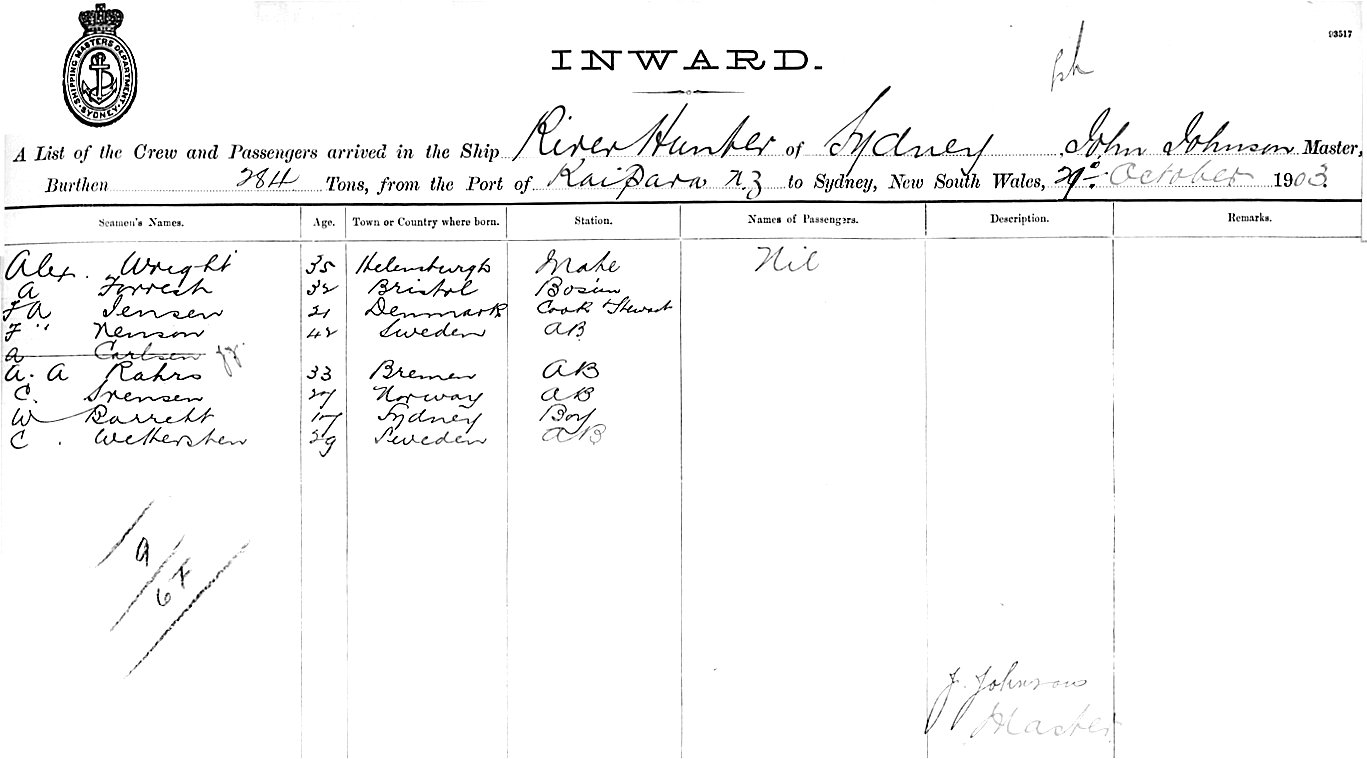 93517
SHIPPING MASTERS DEPARTMENT SYDNEY
INWARD.
A List of the Crew and Passengers arrived in the Ship River Hunter of Sydney John Johnson Master,
Burthen 284 Tons, from the Port of Kaipara NZ to Sydney, New South Wales, October 1903
Seamen's Names. Age. Town or Country where born. Station. Names of Passengers. Description. Remarks.
Alex. Wright 35 Helensburgh Mate Nil
A Forrest 32 Bristol Bosun
F A Jensen 21 Denmark Cook & Stewart
F " Nenson 42 Sweden AB
A Carlsen
A. A Rahrs 33 Bremen AB
C. Srensen 27 Norway AB
W Barrett 17 Sydney Boy
C. Wettersten 29 Sweden AB
9
6 F
J. Johnson
Master